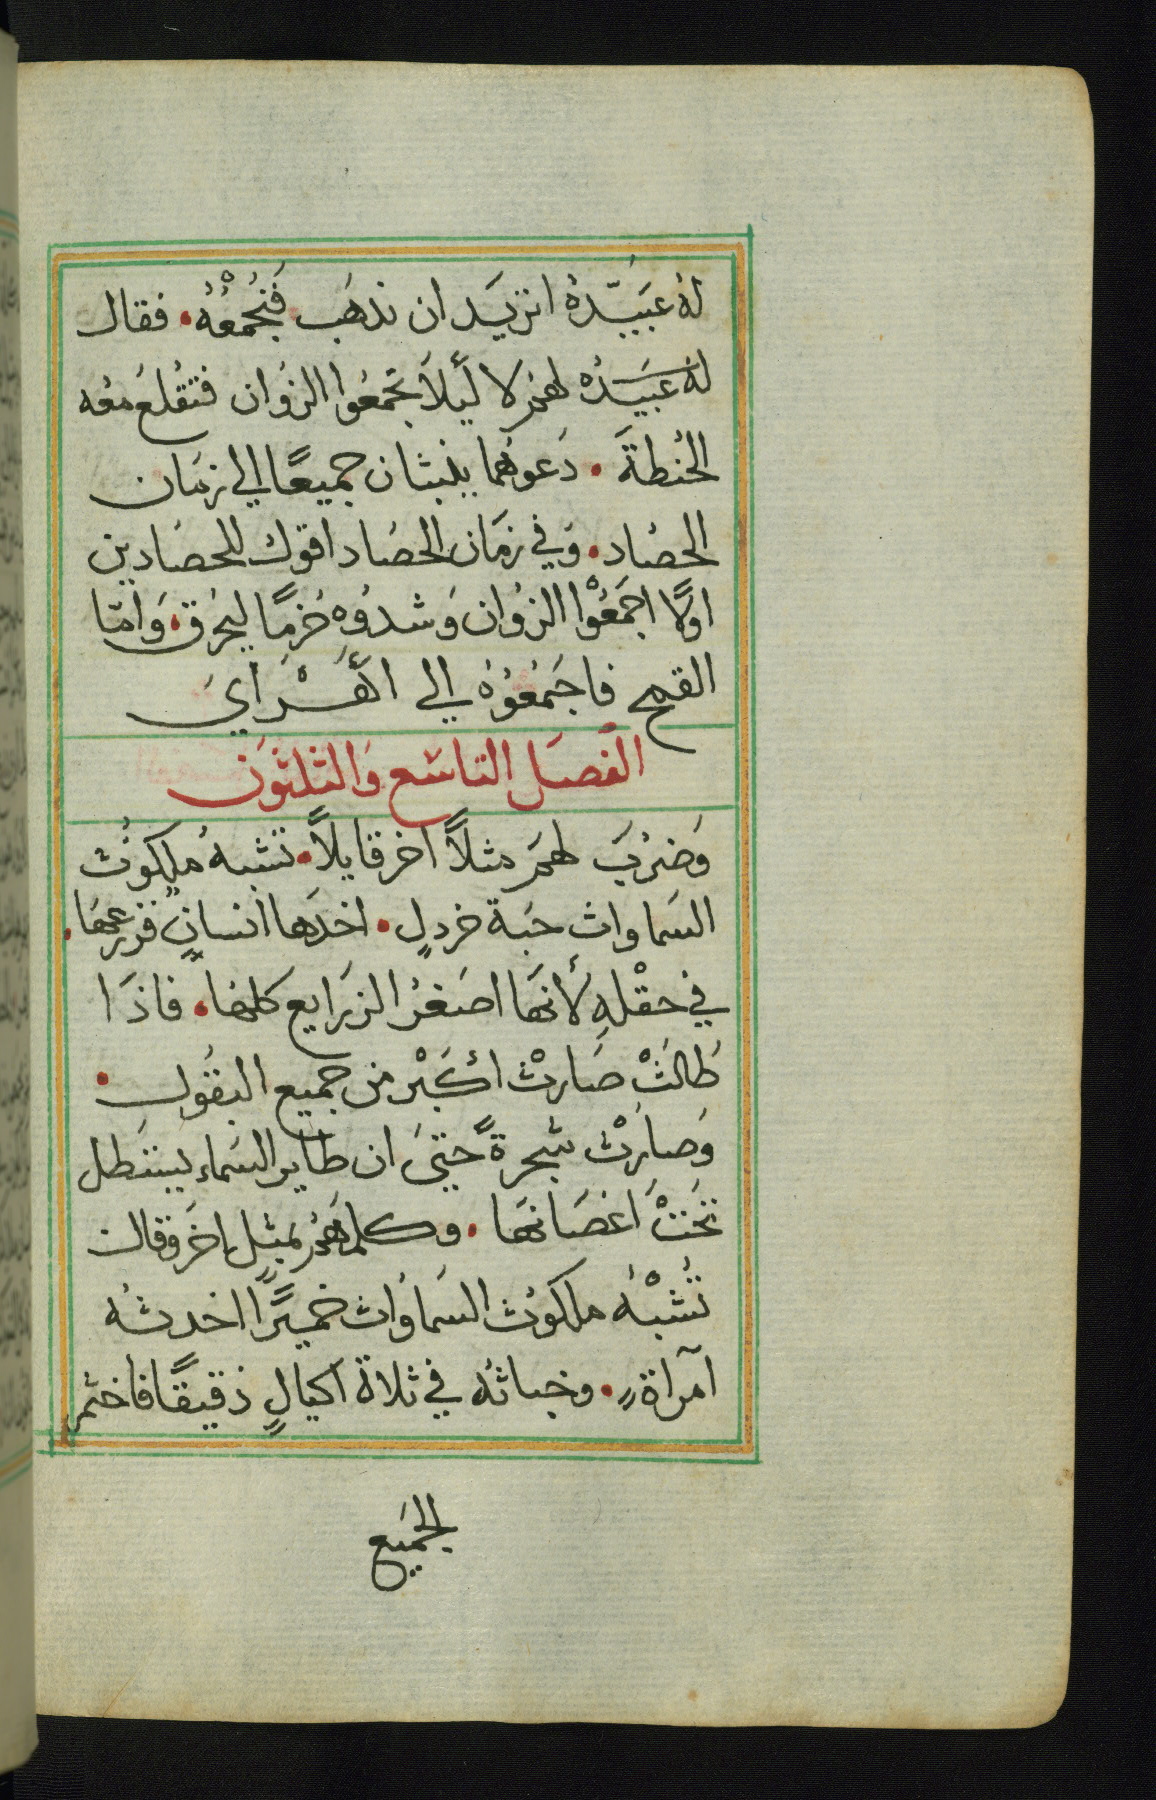 لهُ عَبَيّدهُ اتريَد ان نذهَب • فَنجُمْعُهُ • فقال
لهُ عَبيَدهُ لهمر لا ليَلاَ تجمَعُوا الزوُان فتقُلعَ معُه
الحُنطةَ • دَعوهُما ينبثان جميعًا الي زمَان
الحصُاد • وَفي زمَان الحصَاد اقوك للحصَادين
اولًا اجمَعُوْا الزوُان وَشدوُه حُزمًا ليحُرق • وَامّا
القمح فاجَمُعُوُهُ الي اَهَرَايَ
الفصَل التاسَع وَالثلثوَن
وَضرُبَ لهمَر مثلاً اخر قايلاً • تشبهُ ملكوُث
السَماواث حبَة خردلٍ • اخدَها انسانٍ فزرعهَا •
في حقْلهِ لأنهَا اصَغرُ الزرَايع كلهَا • فاذَا
طَالثَْ صَارثْ اكبَرْ من جميع البقوُل •
وَصارَثْ شجرةً حَتيَ ان طاير السَماء يستَظل
تحَتَْ اغصَانهَا • وكلمهَمُر بمثلٍ اخَر وقالَ
تُشْبْهُ ملكوُث السَماوُاث خميرًا اخدثهُ
آمراةٍ • وخباثهُ في ثلاثة اكيالٍ دَقيقًا فاختمر
الجمَيع